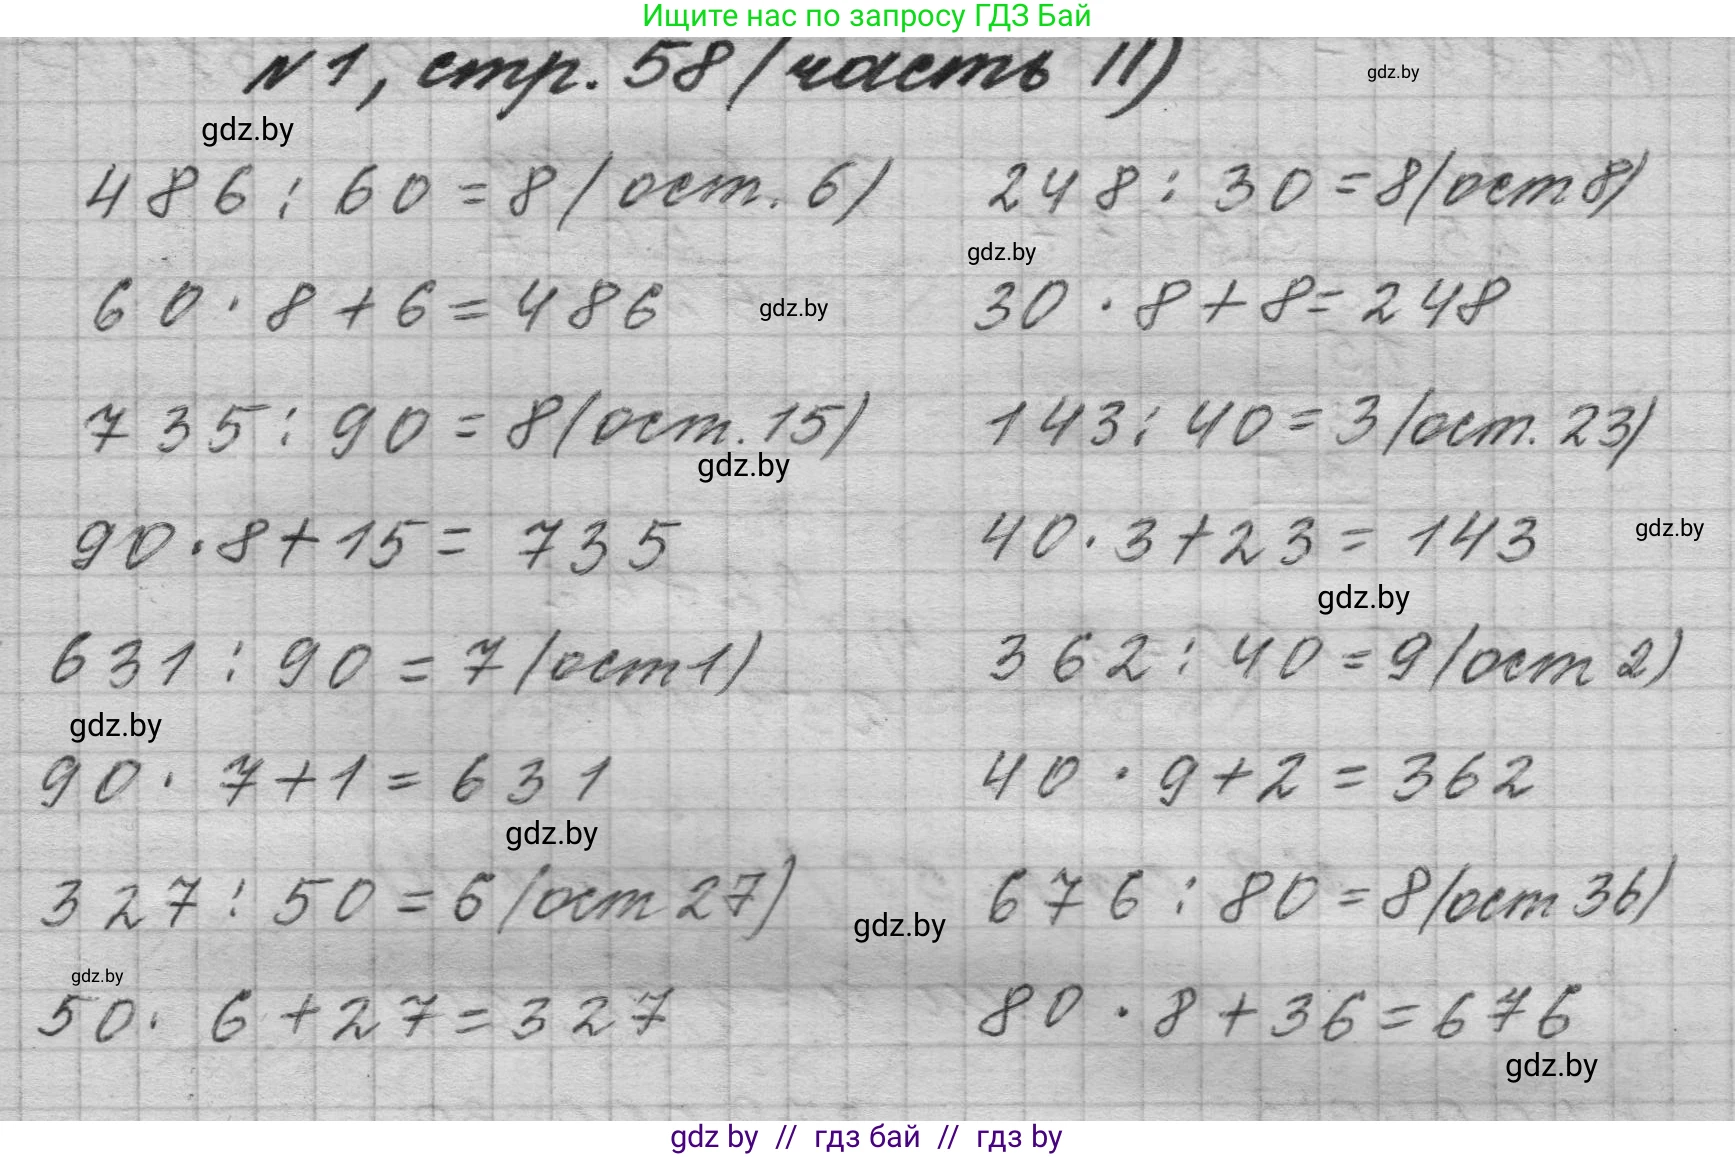 Ищите нас по запросу ГДЗ Бай
№1, стр. 58 (часть II)
gdz.by
gdz.by
486 : 60 = 8 (ост. 6)
248 : 30 = 8 (ост 8)
gdz.by
60 · 8 + 6 = 486
gdz.by
30 · 8 + 8 = 248
735 : 90 = 8 (ост. 15)
143 : 40 = 3 (ост. 23)
gdz.by
90 · 8 + 15 = 735
40 · 3 + 23 = 143
gdz.by
gdz.by
631 : 90 = 7 (ост 1)
362 : 40 = 9 (ост 2)
gdz.by
90 · 7 + 1 = 631
40 · 9 + 2 = 362
gdz.by
327 : 50 = 6 (ост 27)
676 : 80 = 8 (ост 36)
gdz.by
gdz.by
50 · 6 + 27 = 327
80 · 8 + 36 = 676
gdz.by
gdz by // гдз бай // гдз by